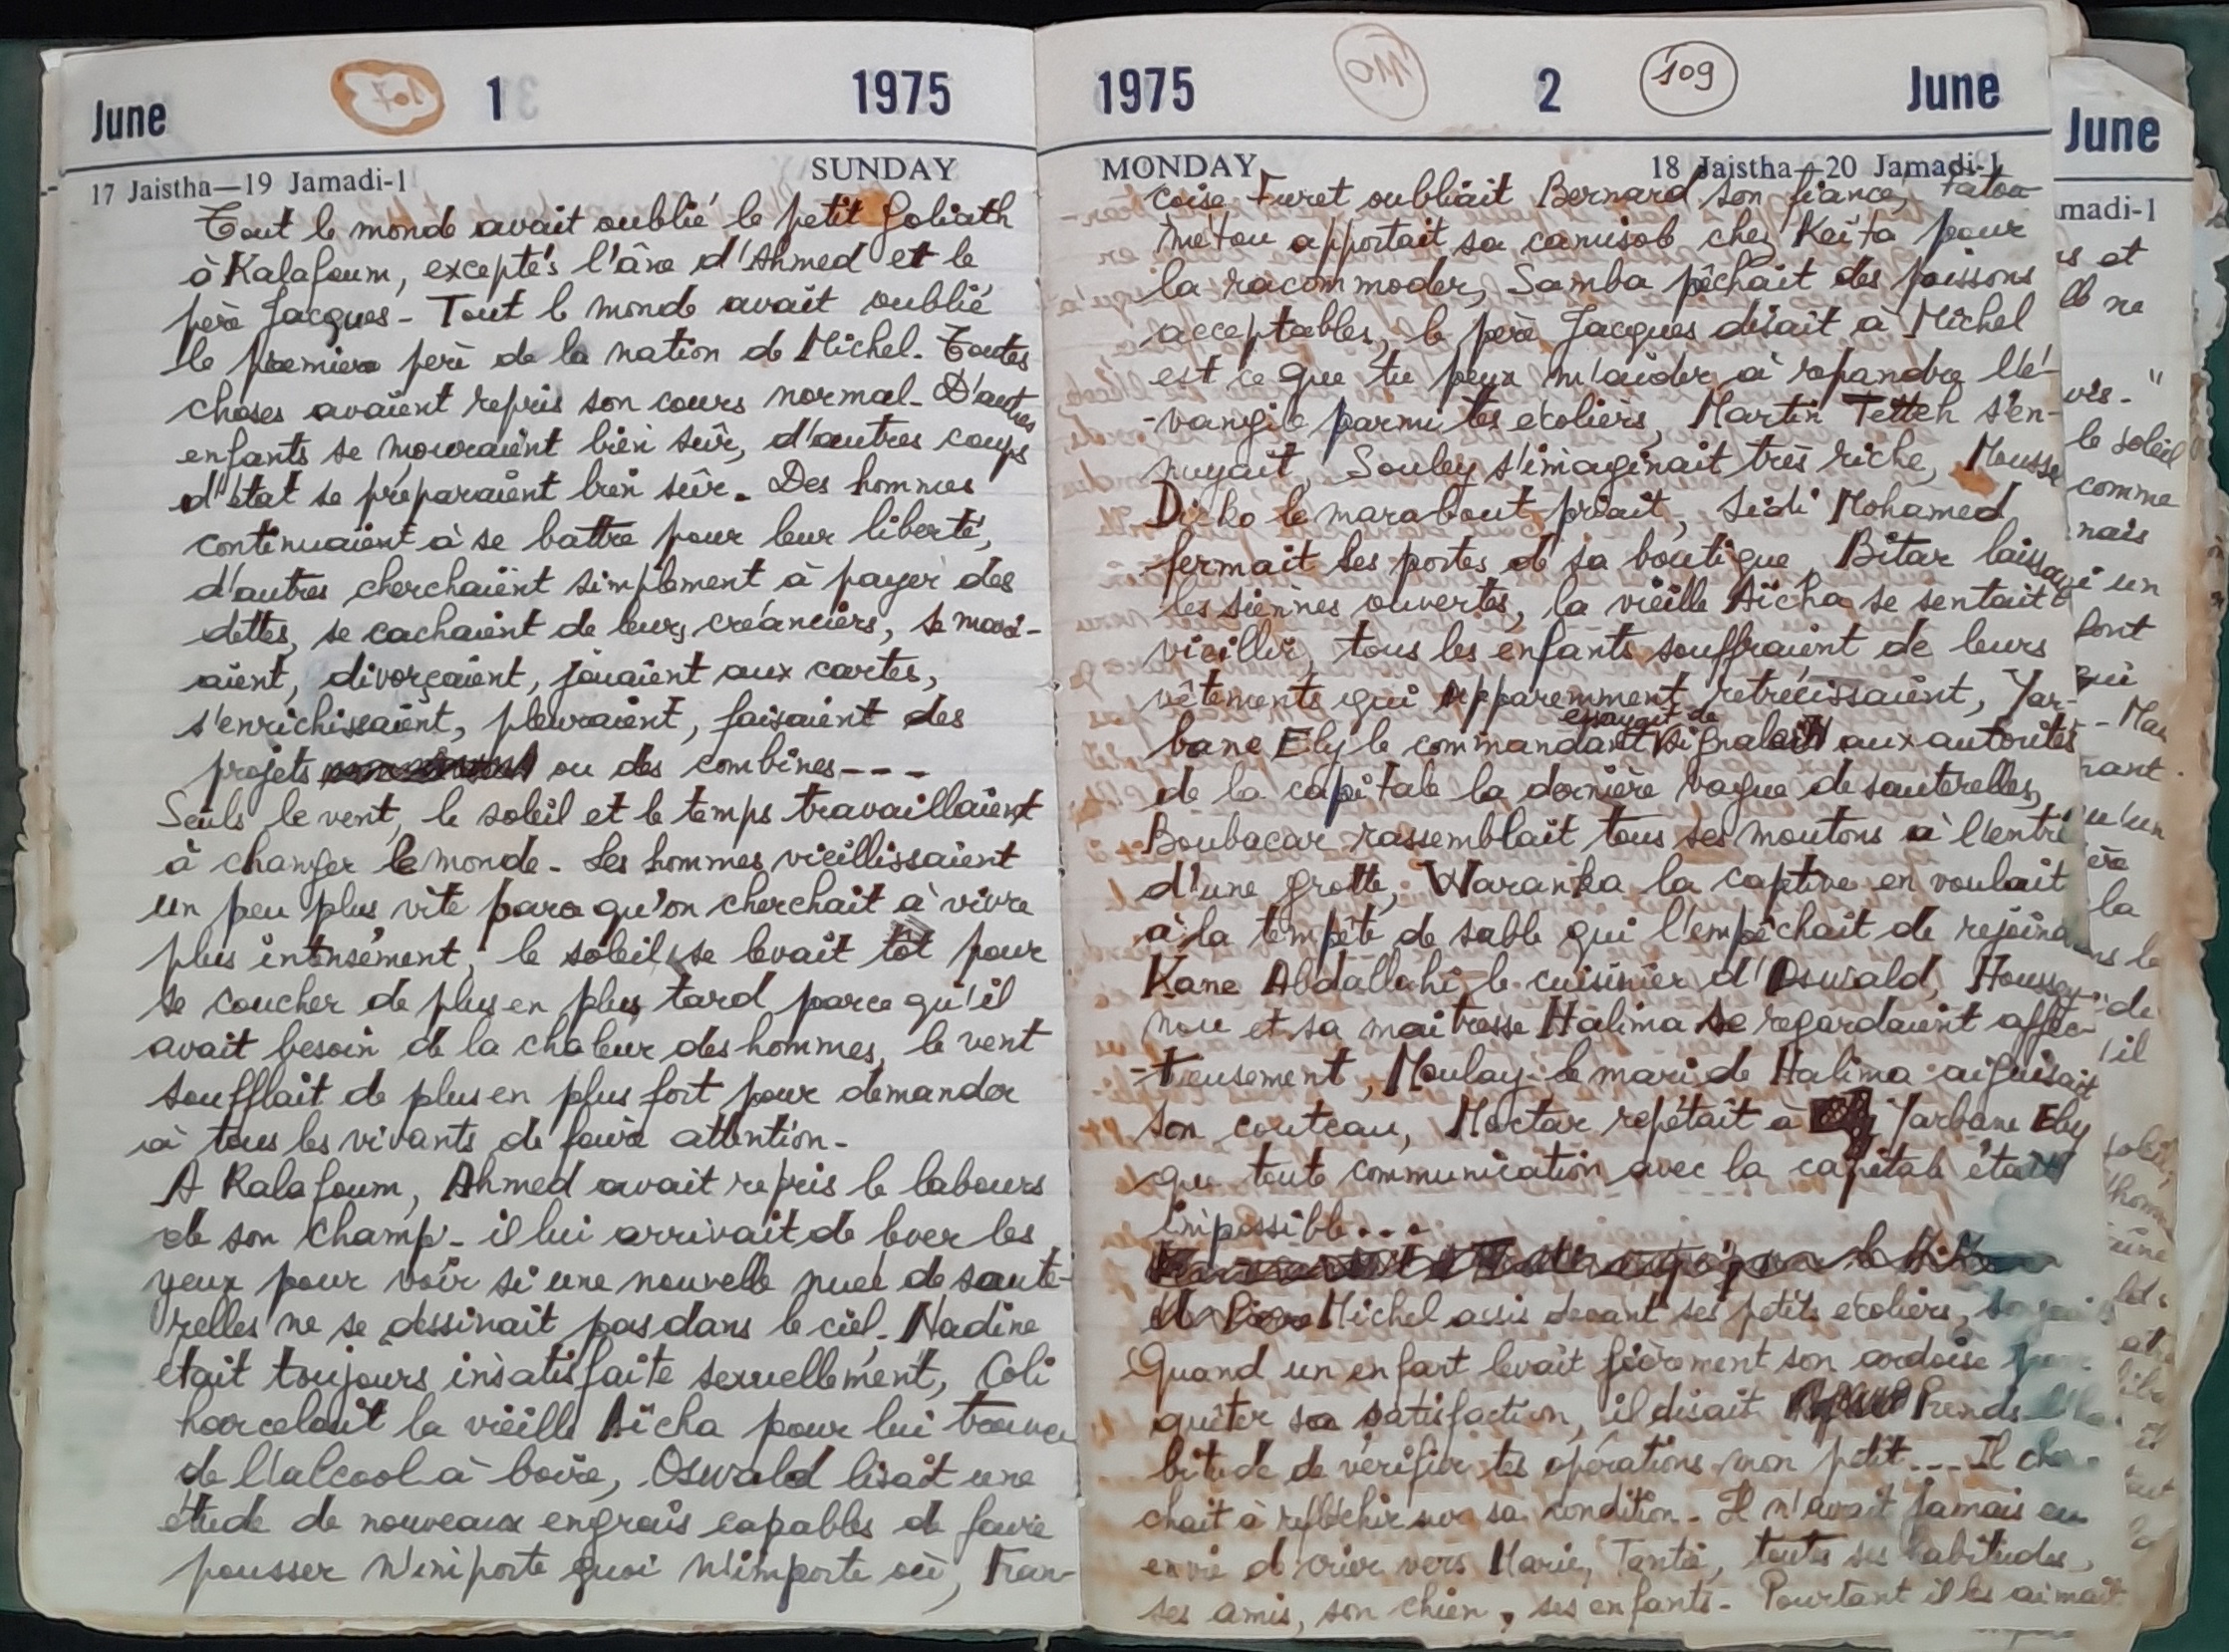 June 107 1 1975
17 Jaistha—19 Jamadi-1 SUNDAY
Tout le monde avait oublié le petit Goliath
à Kalafoum, exceptés l'âne d'Ahmed et le
père Jacques - Tout le monde avait oublié
le premier père de la nation de Michel. Toutes
choses avaient repris son cours normal. D'autres
enfants se mouraient bien sûr, d'autres coups
d'état se préparaient bien sûr. Des hommes
continuaient à se battre pour leur liberté,
d'autres cherchaient simplement à payer des
dettes, se cachaient de leurs créanciers, se mari-
aient, divorçaient, jouaient aux cartes,
s'enrichissaient, pleuraient, faisaient des
projets ou des combines - - -
Seuls le vent, le soleil et le temps travaillaient
à changer le monde - Les hommes vieillissaient
un peu plus vite parce qu'on cherchait à vivre
plus intensément, le soleil se levait tôt pour
se coucher de plus en plus tard parce qu'il
avait besoin de la chaleur des hommes, le vent
soufflait de plus en plus fort pour demander
à tous les vivants de faire attention -
A Kalafoum, Ahmed avait repris le labours
de son champ - il lui arrivait de lever les
yeux pour voir si une nouvelle nueé de saute-
relles ne se dessinait pas dans le ciel. Nadine
était toujours insatisfaite sexuellement, Coli
harcelait la vieille Aïcha pour lui trouver
de l'alcool à boire, Oswald lisait une
étude de nouveaux engrais capables de faire
pousser n'importe quoi n'importe où, Fran-
1975 110 2 109 June
MONDAY 18 Jaistha—20 Jamadi-1
coise Furet oubliait Bernard son fiancé, Fatou
métou apportait sa camisole chez Keïta pour
la racommoder, Samba pêchait des poissons
acceptables, le père Jacques disait à Michel
est ce que tu peux m'aider à repandre l'é-
-vangile parmi tes ecoliers, Martin Tetteh s'en-
nuyait, Souley s'imaginait très riche, Moussa
Dicko le marabout priait, Sidi Mohamed
fermait les portes de sa boutique, Bitar laissait
les siennes ouvertes, la vieille Aïcha se sentait
vieillir, tous les enfants souffraient de leurs
vêtements qui apparemment retrécissaient, Yar-
essayait de
bane Ely le commandant signaler aux autorités
de la capitale la dernière vague de sauterelles,
Boubacar rassemblait tous ses moutons à l'entré
d'une grotte, Waranka la captive en voulait
à la tempête de sable qui l'empêchait de rejoind
Kane Abdallahi le cuisinier d'Oswald, Moussey
nou et sa maitresse Halima se regardaient affec-
-tueusement, Moulay le mari de Halima aiguisait
son couteau, Moctar repétait à Yarbane Ely
que toute communication avec la capitale était
impossible...
Michel assis devant ses petits ecoliers,
Quand un enfant levait fièrement son ardoise
quêter sa satisfaction, il disait Prends
bitude de vérifier tes opérations mon petit - - - Il cher
chait à refléchir sur sa condition - Il n'avait jamais eu
envie de crier vers Marie, Tanté, toutes ses habitudes,
ses amis, son chien, ses enfants - Pourtant il les aimait
June
madi-1
et
ne
le soleil
comme
un
font
qui
la
de
'il